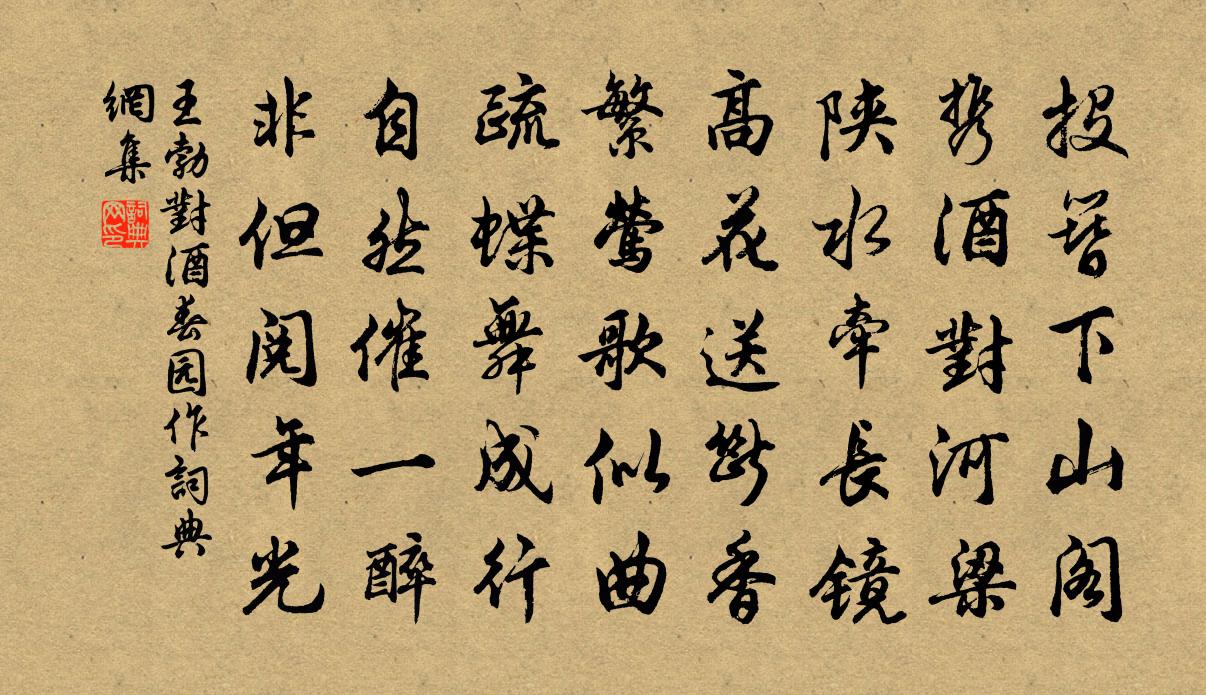 投簪下山阁
携酒對河梁
陕水牽長镜
高花送断香
繁莺歌似曲
疏蝶舞成行
自然催一醉
非但阅年光
王勃對酒春园作詞典
網集
詞典
网印